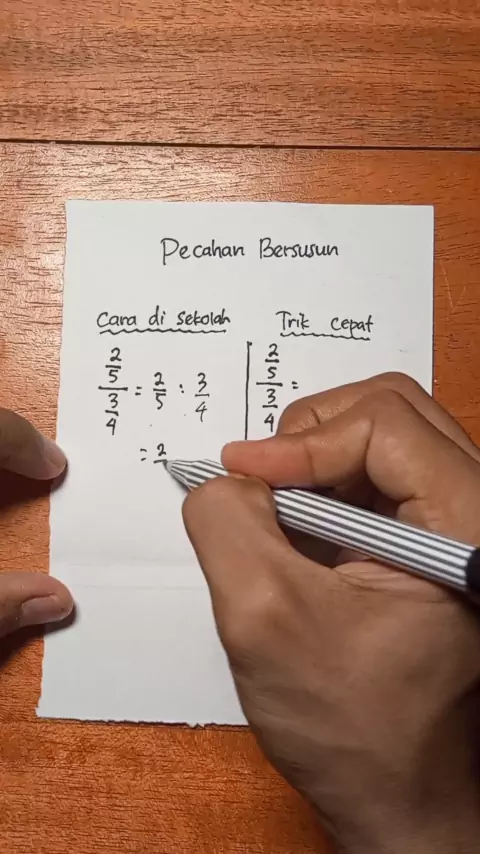 Pecahan Bersusun
Cara di sekolah
2/5 / 3/4 = 2/5 : 3/4
= 2
Trik cepat
2/5 / 3/4 =